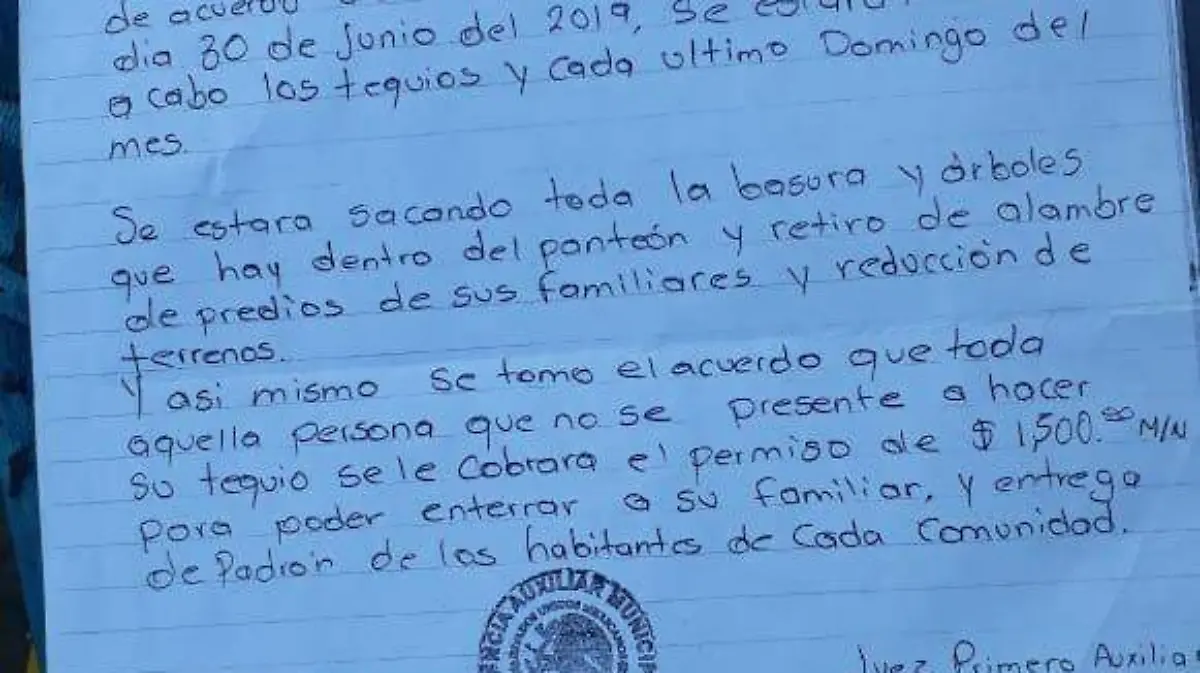 de acuerdo
dia 30 de junio del 2019, se
a cabo los tequios y cada ultimo Domingo del
mes.
Se estara sacando toda la basura y árboles
que hay dentro del panteón y retiro de alambre
de predios de sus familiares y reducción de
terrenos.
Y asi mismo se tomo el acuerdo que toda
aquella persona que no se presente a hacer
su tequio se le cobrara el permiso de $ 1,500.00 M/N
para poder enterrar a su familiar, y entrega
de Padrón de los habitantes de cada comunidad.
ENCIA AUXILIAR MUNICIPA
ESTADOS UNIDOS MEXICANOS
Juez Primero Auxilia